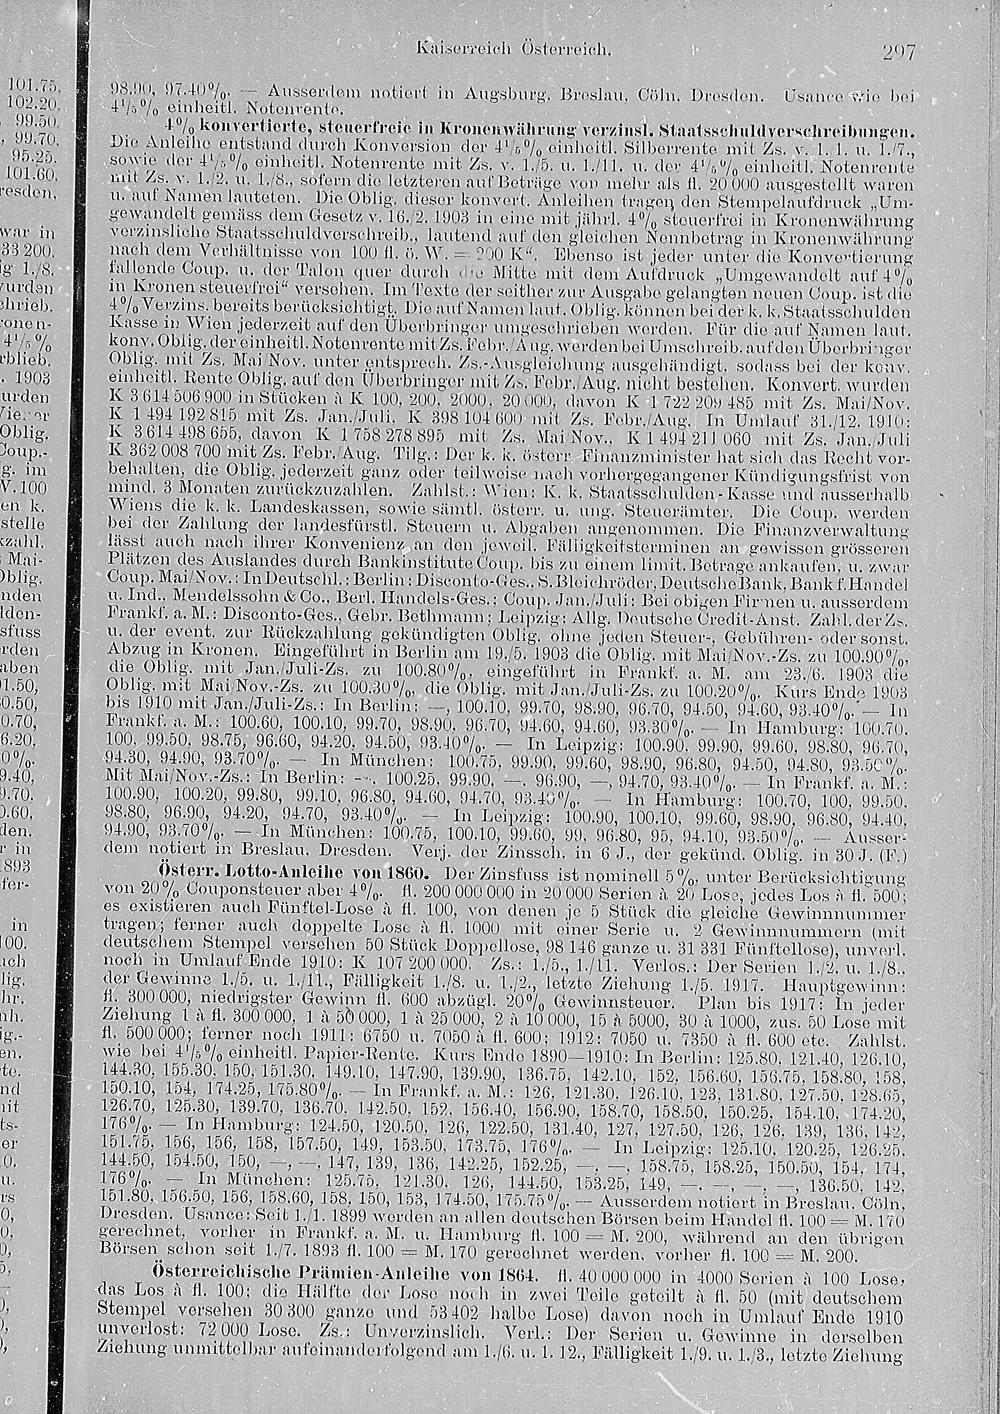 Kaiserreich Österreich.
297
98.90, 97.40%. — Ausserdem notiert in Augsburg, Breslau, Cöln, Dresden. Usance wie bei
4⅕% einheitl. Notenrente.
4% konvertierte, steuerfreie in Kronenwährung verzinsl. Staatsschuldverschreibungen.
Die Anleihe entstand durch Konversion der 4⅕% einheitl. Silberrente mit Zs. v. 1./1. u. 1./7.,
sowie der 4⅕% einheitl. Notenrente mit Zs. v. 1./5. u. 1./11. u. der 4⅕% einheitl. Notenrente
mit Zs. v. 1./2. u. 1./8., sofern die letzteren auf Beträge von mehr als fl. 20 000 ausgestellt waren
u. auf Namen lauteten. Die Oblig. dieser konvert. Anleihen tragen den Stempelaufdruck „Um-
gewandelt gemäss dem Gesetz v. 16./2. 1903 in eine mit jährl. 4% steuerfrei in Kronenwährung
verzinsliche Staatsschuldverschreib., lautend auf den gleichen Nennbetrag in Kronenwährung
nach dem Verhältnisse von 100 fl. ö. W. = 200 K“. Ebenso ist jeder unter die Konvertierung
fallende Coup. u. der Talon quer durch die Mitte mit dem Aufdruck „Umgewandelt auf 4%
in Kronen steuerfrei“ versehen. Im Texte der seither zur Ausgabe gelangten neuen Coup. ist die
4% Verzins. bereits berücksichtigt. Die auf Namen laut. Oblig. können bei der k. k. Staatsschulden
Kasse in Wien jederzeit auf den Überbringer umgeschrieben werden. Für die auf Namen laut.
konv. Oblig. der einheitl. Notenrente mit Zs. Febr./Aug. werden bei Umschreib. auf den Überbringer
Oblig. mit Zs. Mai/Nov. unter entsprech. Zs.-Ausgleichung ausgehändigt, sodass bei der konv.
einheitl. Rente Oblig. auf den Überbringer mit Zs. Febr./Aug. nicht bestehen. Konvert. wurden
K 3 614 506 900 in Stücken à K 100, 200, 2000, 20 000, davon K 1 722 209 485 mit Zs. Mai/Nov.
K 1 494 192 815 mit Zs. Jan./Juli, K 398 104 600 mit Zs. Febr./Aug. In Umlauf 31./12. 1910:
K 3 614 498 655, davon K 1 758 278 895 mit Zs. Mai Nov., K 1 494 211 060 mit Zs. Jan./Juli
K 362 008 700 mit Zs. Febr./Aug. Tilg.: Der k. k. österr. Finanzminister hat sich das Recht vor-
behalten, die Oblig. jederzeit ganz oder teilweise nach vorhergegangener Kündigungsfrist von
mind. 3 Monaten zurückzuzahlen. Zahlst.: Wien: K. k. Staatsschulden-Kasse und ausserhalb
Wiens die k. k. Landeskassen, sowie sämtl. österr. u. ung. Steuerämter. Die Coup. werden
bei der Zahlung der landesfürstl. Steuern u. Abgaben angenommen. Die Finanzverwaltung
lässt auch nach ihrer Konvenienz an den jeweil. Fälligkeitsterminen an gewissen grösseren
Plätzen des Auslandes durch Bankinstitute Coup. bis zu einem limit. Betrage ankaufen, u. zwar
Coup. Mai/Nov.: In Deutschl.: Berlin: Disconto-Ges., S. Bleichröder, Deutsche Bank, Bank f. Handel
u. Ind., Mendelssohn & Co., Berl. Handels-Ges.; Coup. Jan./Juli: Bei obigen Firmen u. ausserdem
Frankf. a. M.: Disconto-Ges., Gebr. Bethmann; Leipzig: Allg. Deutsche Credit-Anst. Zahl. der Zs.
u. der event. zur Rückzahlung gekündigten Oblig. ohne jeden Steuer-, Gebühren- oder sonst.
Abzug in Kronen. Eingeführt in Berlin am 19./5. 1903 die Oblig. mit Mai/Nov.-Zs. zu 100.90%,
die Oblig. mit Jan./Juli-Zs. zu 100.80%, eingeführt in Frankf. a. M. am 23./6. 1903 die
Oblig. mit Mai Nov.-Zs. zu 100.30%, die Oblig. mit Jan./Juli-Zs. zu 100.20%. Kurs Ende 1903
bis 1910 mit Jan./Juli-Zs.: In Berlin: —, 100.10, 99.70, 98.90, 96.70, 94.50, 94.60, 93.40%. — In
Frankf. a. M.: 100.60, 100.10, 99.70, 98.90, 96.70, 94.60, 94.60, 93.30%. — In Hamburg: 100.70,
100, 99.50, 98.75, 96.60, 94.20, 94.50, 93.40%. — In Leipzig: 100.90, 99.90, 99.60, 98.80, 96.70,
94.30, 94.90, 93.70%. — In München: 100.75, 99.90, 99.60, 98.90, 96.80, 94.50, 94.80, 93.50%.
Mit Mai/Nov.-Zs.: In Berlin: —, 100.25, 99.90, —, 96.90, —, 94.70, 93.40%. — In Frankf. a. M.:
100.90, 100.20, 99.80, 99.10, 96.80, 94.60, 94.70, 93.40%. — In Hamburg: 100.70, 100, 99.50,
98.80, 96.90, 94.20, 94.70, 93.40%. — In Leipzig: 100.90, 100.10, 99.60, 98.90, 96.80, 94.40,
94.90, 93.70%. — In München: 100.75, 100.10, 99.60, 99, 96.80, 95, 94.10, 93.50%. — Ausser-
dem notiert in Breslau, Dresden. Verj. der Zinssch. in 6 J., der gekünd. Oblig. in 30 J. (F.)
Österr. Lotto-Anleihe von 1860. Der Zinsfuss ist nominell 5%, unter Berücksichtigung
von 20% Couponsteuer aber 4%. fl. 200 000 000 in 20 000 Serien à 20 Lose, jedes Los à fl. 500;
es existieren auch Fünftel-Lose à fl. 100, von denen je 5 Stück die gleiche Gewinnnummer
tragen; ferner auch doppelte Lose à fl. 1000 mit einer Serie u. 2 Gewinnnummern (mit
deutschem Stempel versehen 50 Stück Doppellose, 98 146 ganze u. 31 331 Fünftellose), unverl.
noch in Umlauf Ende 1910: K 107 200 000. Zs.: 1./5., 1./11. Verlos.: Der Serien 1./2. u. 1./8.,
der Gewinne 1./5. u. 1./11., Fälligkeit 1./8. u. 1./2., letzte Ziehung 1./5. 1917. Hauptgewinn:
fl. 300 000, niedrigster Gewinn fl. 600 abzügl. 20% Gewinnsteuer. Plan bis 1917: In jeder
Ziehung 1 à fl. 300 000, 1 à 50 000, 1 à 25 000, 2 à 10 000, 15 à 5000, 30 à 1000, zus. 50 Lose mit
fl. 500 000; ferner noch 1911: 6750 u. 7050 à fl. 600; 1912: 7050 u. 7350 à fl. 600 etc. Zahlst.
wie bei 4⅕% einheitl. Papier-Rente. Kurs Ende 1890—1910: In Berlin: 125.80, 121.40, 126.10,
144.30, 155.30, 150, 151.30, 149.10, 147.90, 139.90, 136.75, 142.10, 152, 156.60, 156.75, 158.80, 158,
150.10, 154, 174.25, 175.80%. — In Frankf. a. M.: 126, 121.30, 126.10, 123, 131.80, 127.50, 128.65,
126.70, 125.30, 139.70, 136.70, 142.50, 152, 156.40, 156.90, 158.70, 158.50, 150.25, 154.10, 174.20,
176%. — In Hamburg: 124.50, 120.50, 126, 122.50, 131.40, 127, 127.50, 126, 126, 139, 136, 142,
151.75, 156, 156, 158, 157.50, 149, 153.50, 173.75, 176%. — In Leipzig: 125.10, 120.25, 126.25,
144.50, 154.50, 150, —, —, 147, 139, 136, 142.25, 152.25, —, —, 158.75, 158.25, 150.50, 154, 174,
176%. — In München: 125.75, 121.30, 126, 144.50, 153.25, 149, —, —, —, —, 136.50, 142,
151.80, 156.50, 156, 158.60, 158, 150, 153, 174.50, 175.75%. — Ausserdem notiert in Breslau, Cöln,
Dresden. Usance: Seit 1./1. 1899 werden an allen deutschen Börsen beim Handel fl. 100 = M. 170
gerechnet, vorher in Frankf. a. M. u. Hamburg fl. 100 = M. 200, während an den übrigen
Börsen schon seit 1./7. 1893 fl. 100 = M. 170 gerechnet werden, vorher fl. 100 = M. 200.
Österreichische Prämien-Anleihe von 1864. fl. 40 000 000 in 4000 Serien à 100 Lose,
das Los à fl. 100; die Hälfte der Lose noch in zwei Teile geteilt à fl. 50 (mit deutschem
Stempel versehen 30 300 ganze und 53 402 halbe Lose) davon noch in Umlauf Ende 1910
unverlost: 72 000 Lose. Zs.: Unverzinslich. Verl.: Der Serien u. Gewinne in derselben
Ziehung unmittelbar aufeinanderfolgend am 1./6. u. 1. 12., Fälligkeit 1./9. u. 1./3., letzte Ziehung